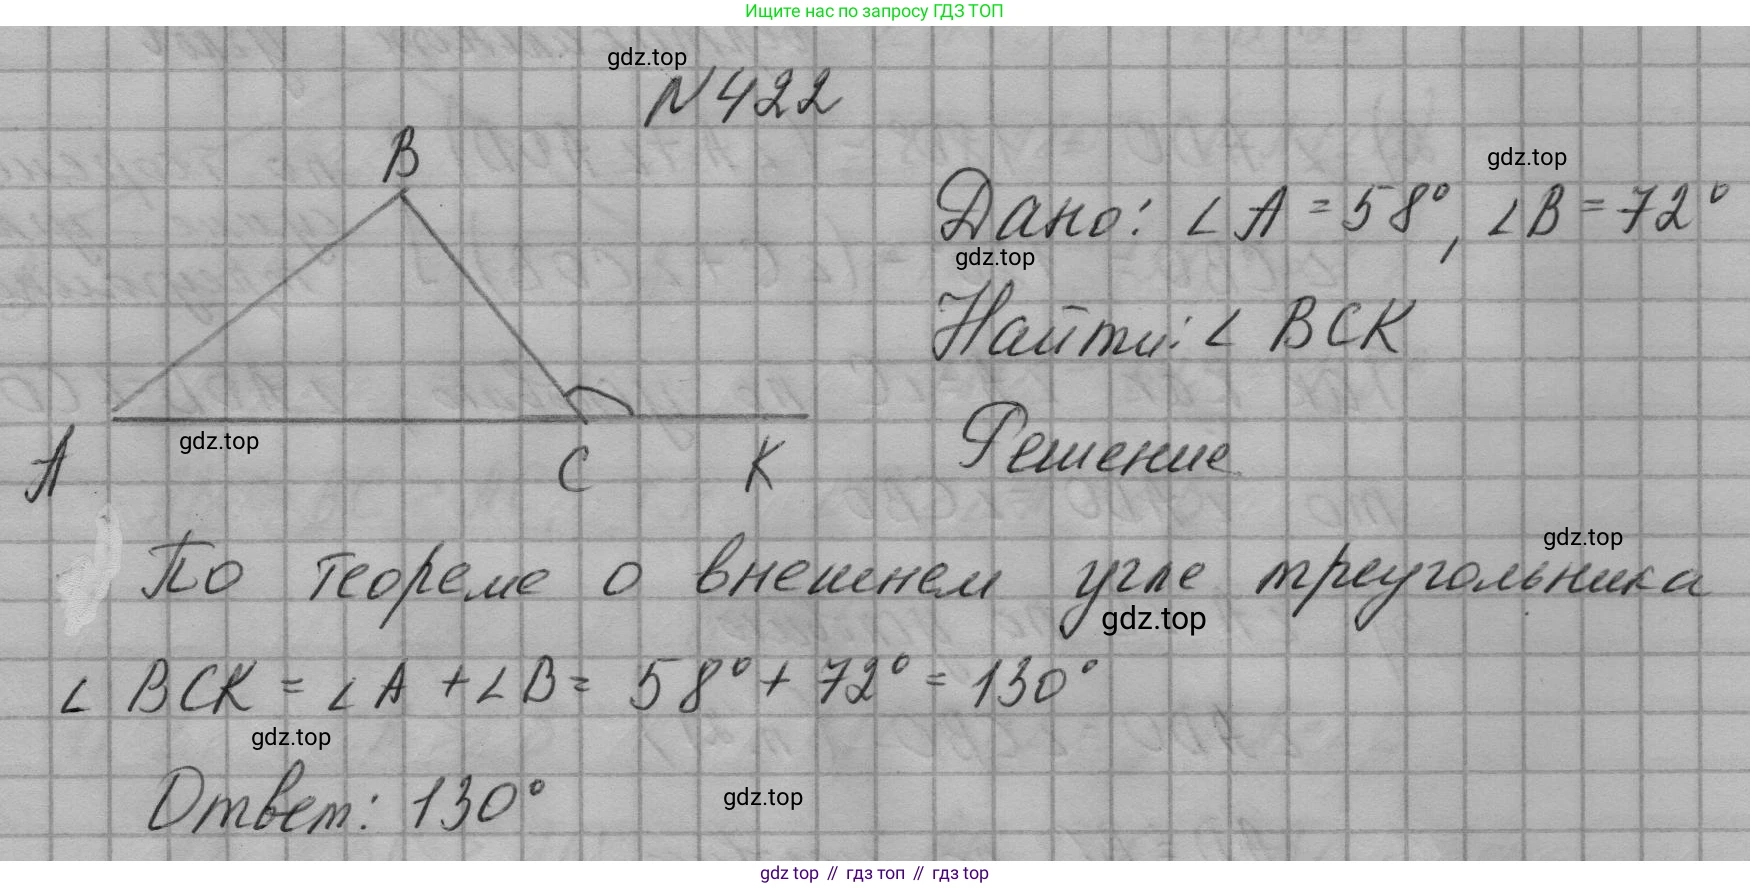 Ищите нас по запросу ГДЗ ТОП
gdz.top
N422
B
gdz.top
Дано: ∠A = 58°, ∠B = 72°
gdz.top
Найти: ∠ BCK
Решение
gdz.top
A
C
K
gdz.top
По теореме о внешнем угле треугольника
gdz.top
∠ BCK = ∠A + ∠B = 58° + 72° = 130°
gdz.top
Ответ: 130°
gdz.top
gdz top // гдз топ // gdz top